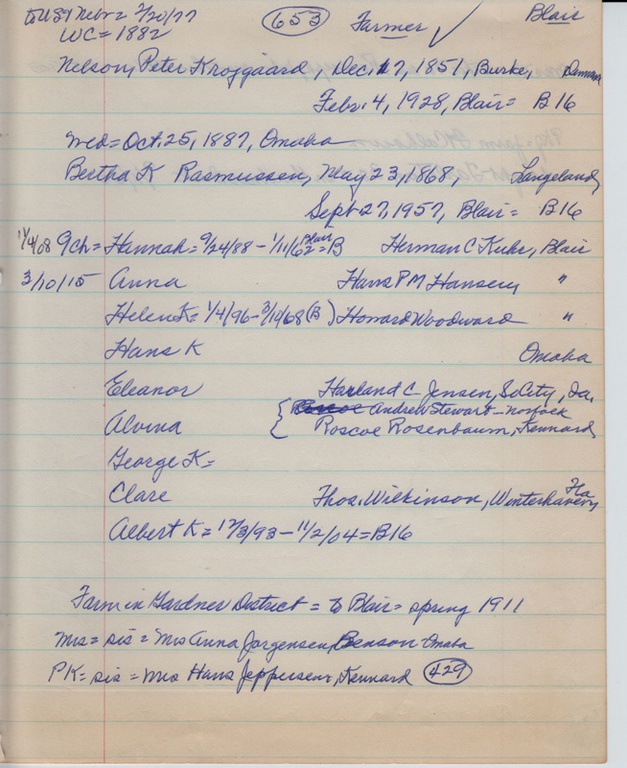 to USA Nebr = 2/20/77 (653) Farmer ✓ Blair
WC = 1882
Nelson, Peter Krojgaard, Dec. 17, 1851, Burke,
Febr. 4, 1928, Blair = B16
Wed = Oct. 25, 1887, Omaha
Bertha K Rasmussen, May 23, 1868, Langeland,
Sept 27, 1957, Blair = B16
1/4/08 9ch = Hannah = 9/24/88 - 1/11/62 = Blair B Herman C Kuhr, Blair
3/10/15 Anna Hans P M Hansen, "
Helen K = 1/4/96 - 3/14/68 (B) Howard Woodward "
Hans K Omaha
Eleanor Harland C Jensen, So City, Ia.
Andrew Stewart - Norfock
Alvina { Roscoe Rosenbaum, Kennard,
George K =
Clare Thos. Wilkinson, Winterhaven, Fla
Albert K = 12/3/93 - 11/2/04 = B16
Farm in Gardner District = to Blair = spring 1911
Mrs = sis = Mrs Anna Jorgensen, Benson Omaha
PK = sis = Mrs Hans Jeppesen, Kennard (429)